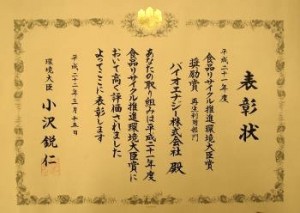 表彰状
平成二十一年度
食品リサイクル推進環境大臣賞
奨励賞 再生利用部門
バイオエナジー株式会社 殿
あなたの取り組みは平成二十一年度
食品リサイクル推進環境大臣賞に
おいて高く評価されました
よってここに表彰します
平成二十二年三月十五日
環境大臣 小沢鋭仁